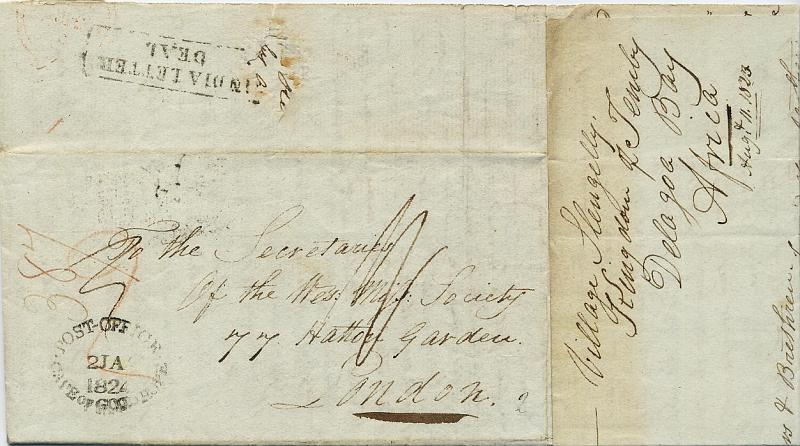 INDIA LETTER
DEAL
To the Secretaries
Of the Wes: Miss: Society
77 Hatton Garden.
London.
POST-OFFICE
2JA
1824
CAPE OF GOOD HOPE
Village Slengelly.
Kingdom of Temby
Delagoa Bay
Africa
Augt. 11. 1823
& Brethren